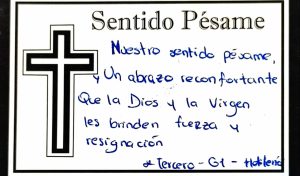 Sentido Pésame
Nuestro sentido pésame,
y Un abrazo reconfortante
Que la Dios y la Virgen
les brinden fuerza y
resignación
Tercero - G1 -